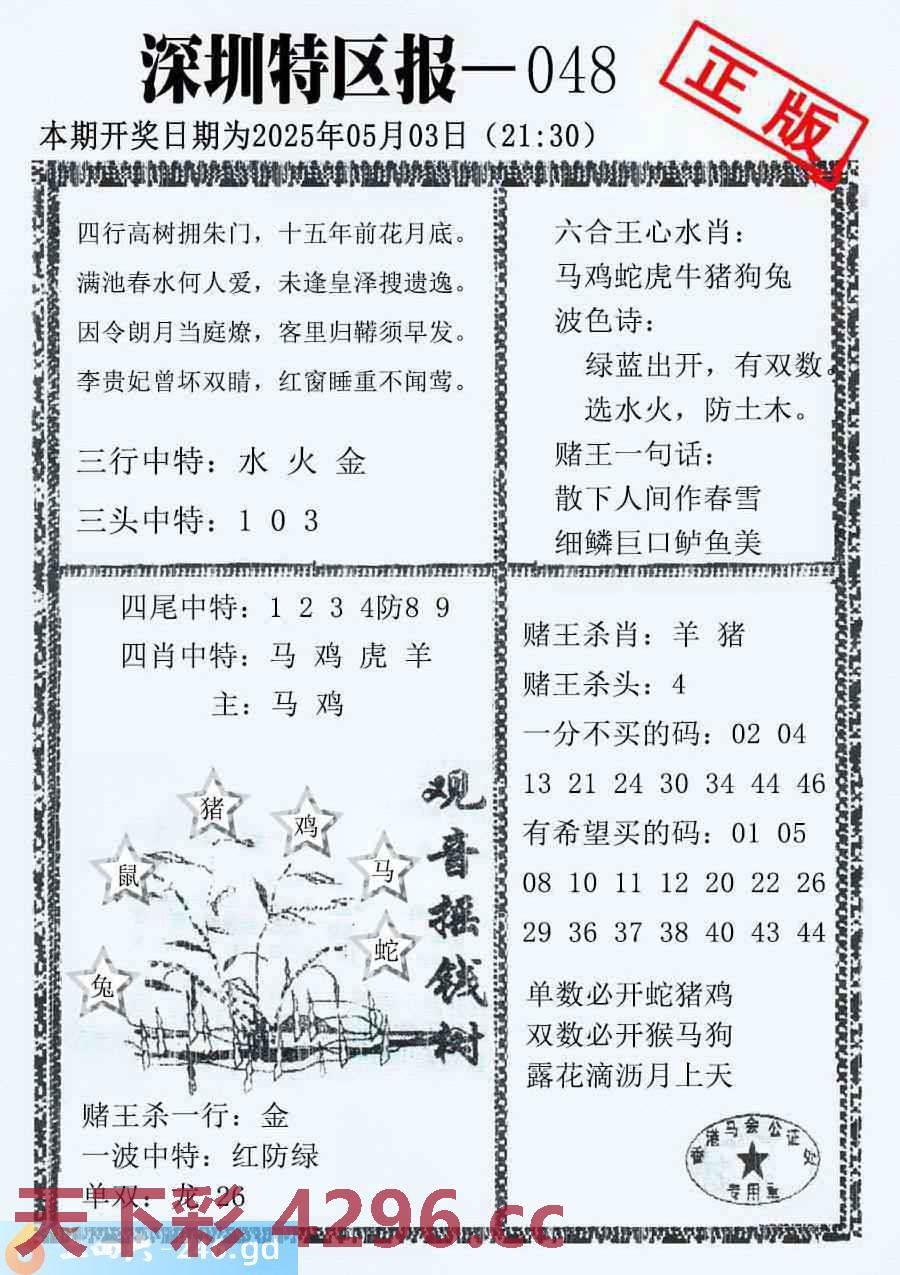 深圳特区报—048
正版
本期开奖日期为2025年05月03日（21:30）
四行高树拥朱门，十五年前花月底。
满池春水何人爱，未逢皇泽搜遗逸。
因令朗月当庭燎，客里归鞯须早发。
李贵妃曾坏双睛，红窗睡重不闻莺。
三行中特：水 火 金
三头中特：1 0 3
六合王心水肖：
马鸡蛇虎牛猪狗兔
波色诗：
绿蓝出开，有双数。
选水火，防土木。
赌王一句话：
散下人间作春雪
细鳞巨口鲈鱼美
四尾中特：1 2 3 4防8 9
四肖中特：马 鸡 虎 羊
主：马 鸡
猪
鸡
鼠
马
蛇
兔
观音摇钱树
赌王杀一行：金
一波中特：红防绿
单双：龙 26
赌王杀肖：羊 猪
赌王杀头：4
一分不买的码：02 04
13 21 24 30 34 44 46
有希望买的码：01 05
08 10 11 12 20 22 26
29 36 37 38 40 43 44
单数必开蛇猪鸡
双数必开猴马狗
露花滴沥月上天
香港马会公证处
专用章
天下彩 4296.cc
-246.gd